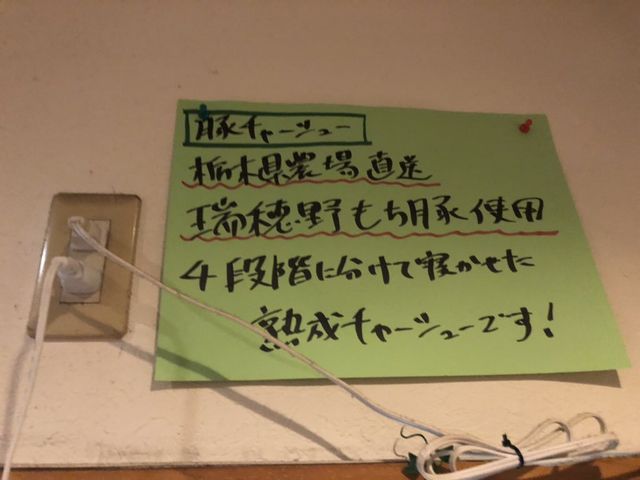 豚チャーシュー
栃木県農場直送
瑞穂野もち豚使用
4段階に分けて寝かせた
熟成チャーシューです！